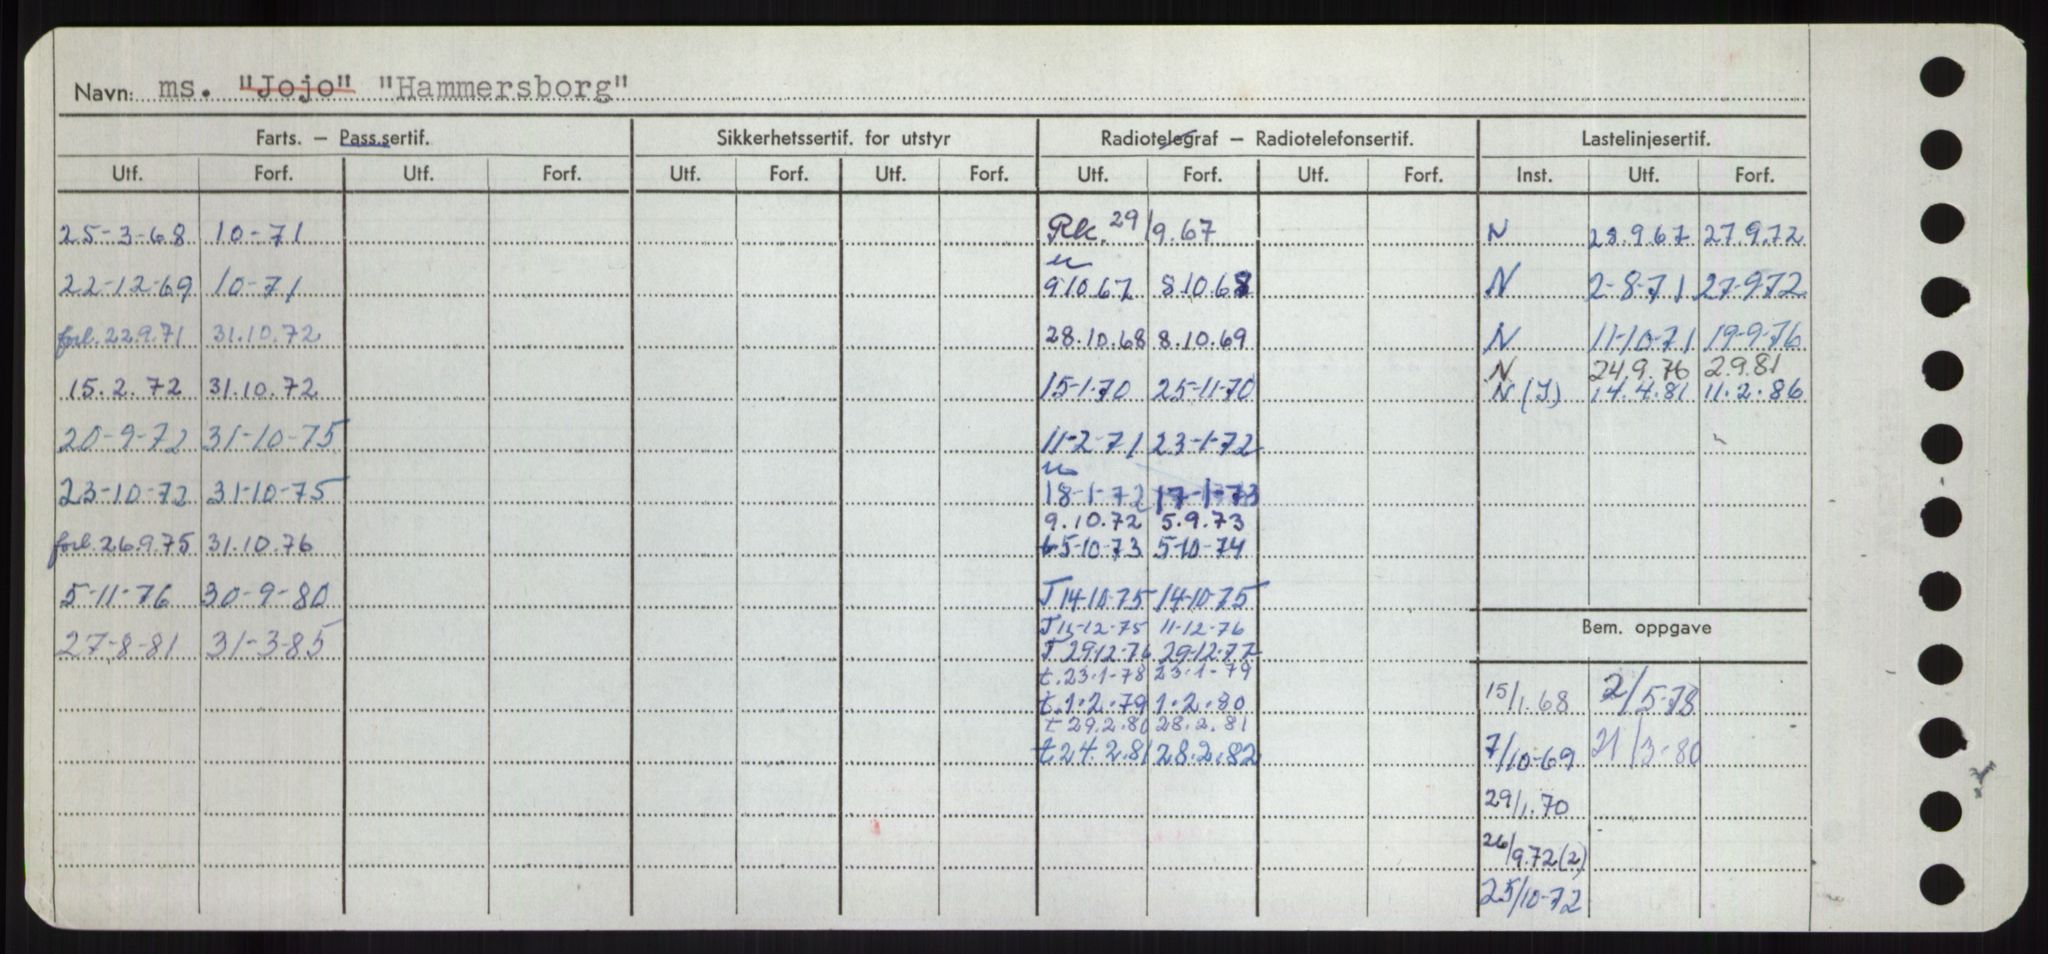 Navn: ms. "Jojo" "Hammersborg"
Farts. — Pass.sertif. Sikkerhetssertif. for utstyr Radiotelegraf — Radiotelefonsertif. Lastelinjesertif.
Utf. Forf. Utf. Forf. Utf. Forf. Utf. Forf. Utf. Forf. Utf. Forf. Inst. Utf. Forf.
25-3-68 10-71 Rk. 29/9.67 N 28.9.67 27.9.72
22-12-69 10-71 9.10.67 8.10.68 N 2-8-71 27-9-72
forl. 22.9.71 31.10.72 28.10.68 8.10.69 N 11-10-71 19-9-76
N 24.9.76 2.9.81
15.2.72 31.10.72 15-1-70 25-11-70 N (I) 14.4.81 11.2.86
20-9-72 31-10-75 11-2-71 23-1-72
23-10-72 31-10-75 18-1-72 17-1-73
9.10.72 5.9.73
forl. 26.9.75 31.10.76 t 5-10-73 5-10-74
5-11-76 30-9-80 T 14-10-75 14-10-75
T 15-12-75 11-12-76
Bem. oppgave
27-8-81 31-3-85 T 29.12-76 29-12-77
t. 23.1-78 23.1-79
15/1.68 2/5-78
t. 1.2.79 1.2.80
t 29.2.80 28.2.81
t 24.2.81 28.2.82
7/10-69 21/3-80
29/1.70
26/9.72 (2)
25/10-72